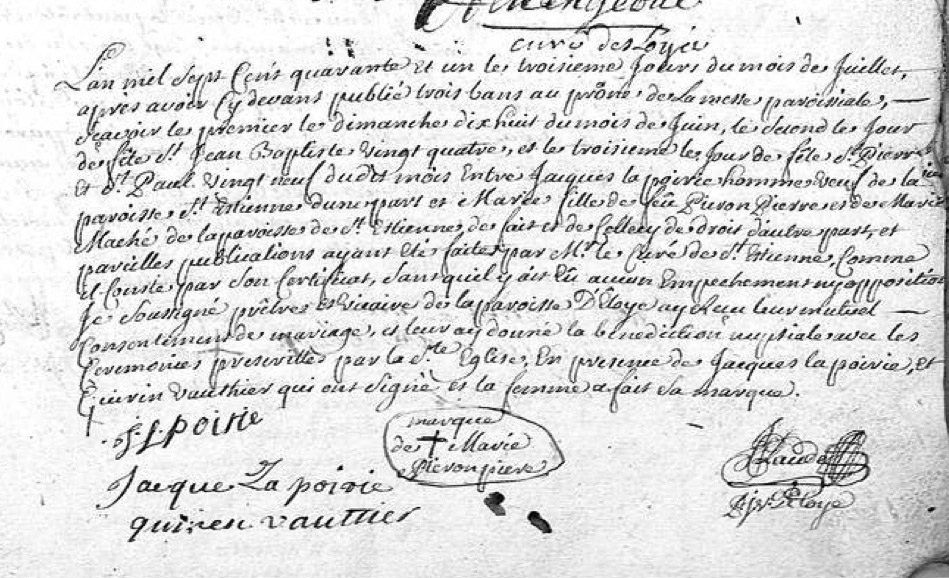 curé des Loÿes
L'an mil sept Cens quarante et un le troisieme Jours du mois de Juillet,
apres avoir Cy devant publié trois bans au prône de La messe paroissiale, —
sçavoir le premier le dimanche dix huit du mois de Juin, le second le Jour
de fête St. Jean Baptiste vingt quatre, et le troisieme le Jour de fête St. Pierre
Et St. Paul vingt neuf dudt mois Entre Jacques la poirie homme veuf de la
paroisse St. Estienne dune part et Marie fille de feu Pieron Pierre et de Marie
Maché de la paroisse de St. Estienne de fait et de Celle cy de droit dautre part, et
pareilles publications ayant été faites par Mr. le Curé de St. Estienne, Comme
il Conste par son Certificat, sans quil y ait Eu aucun Empechement ny opposition
Je soussigné prêtre et vicaire de la paroisse D'eloye ay Receu leur mutuel —
Consentiment de mariage, et leur ay donné la benediction nuptiale avec les
Ceremonies prescrittes par la Ste Eglise, En presence de Jacques la poirie, Et
Quirin vauthier qui ont signé et la femme a fait sa marque.
J. L. poirie
marque
de + Marie
Pieronpiere
Jacque La poirie
quiren vauthier